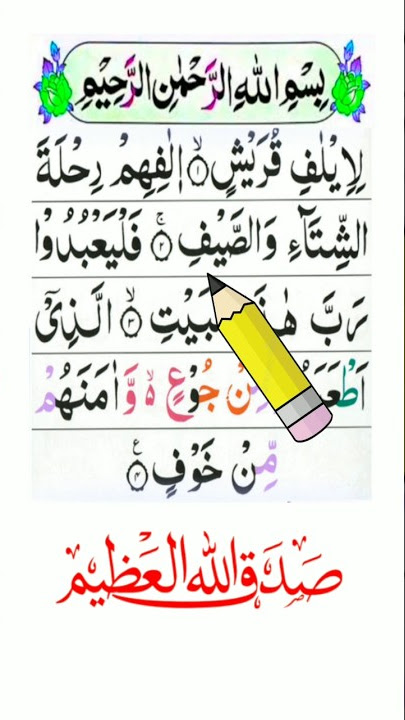 بِسْمِ اللهِ الرَّحْمٰنِ الرَّحِيْمِ
لِاِيْلٰفِ قُرَيْشٍ ۙ﴿۱﴾ اٖلٰفِهِمْ رِحْلَةَ
الشِّتَآءِ وَالصَّيْفِ ۚ﴿۲﴾ فَلْيَعْبُدُوْا
رَبَّ ﴿۳﴾ۙ الَّذِيْٓ
جُوْعٍ ۙ۬ وَّاٰمَنَهُمْ
مِّنْ خَوْفٍ ﴿۴﴾ ع
صَدَقَ اللهُ الْعَظِيْم